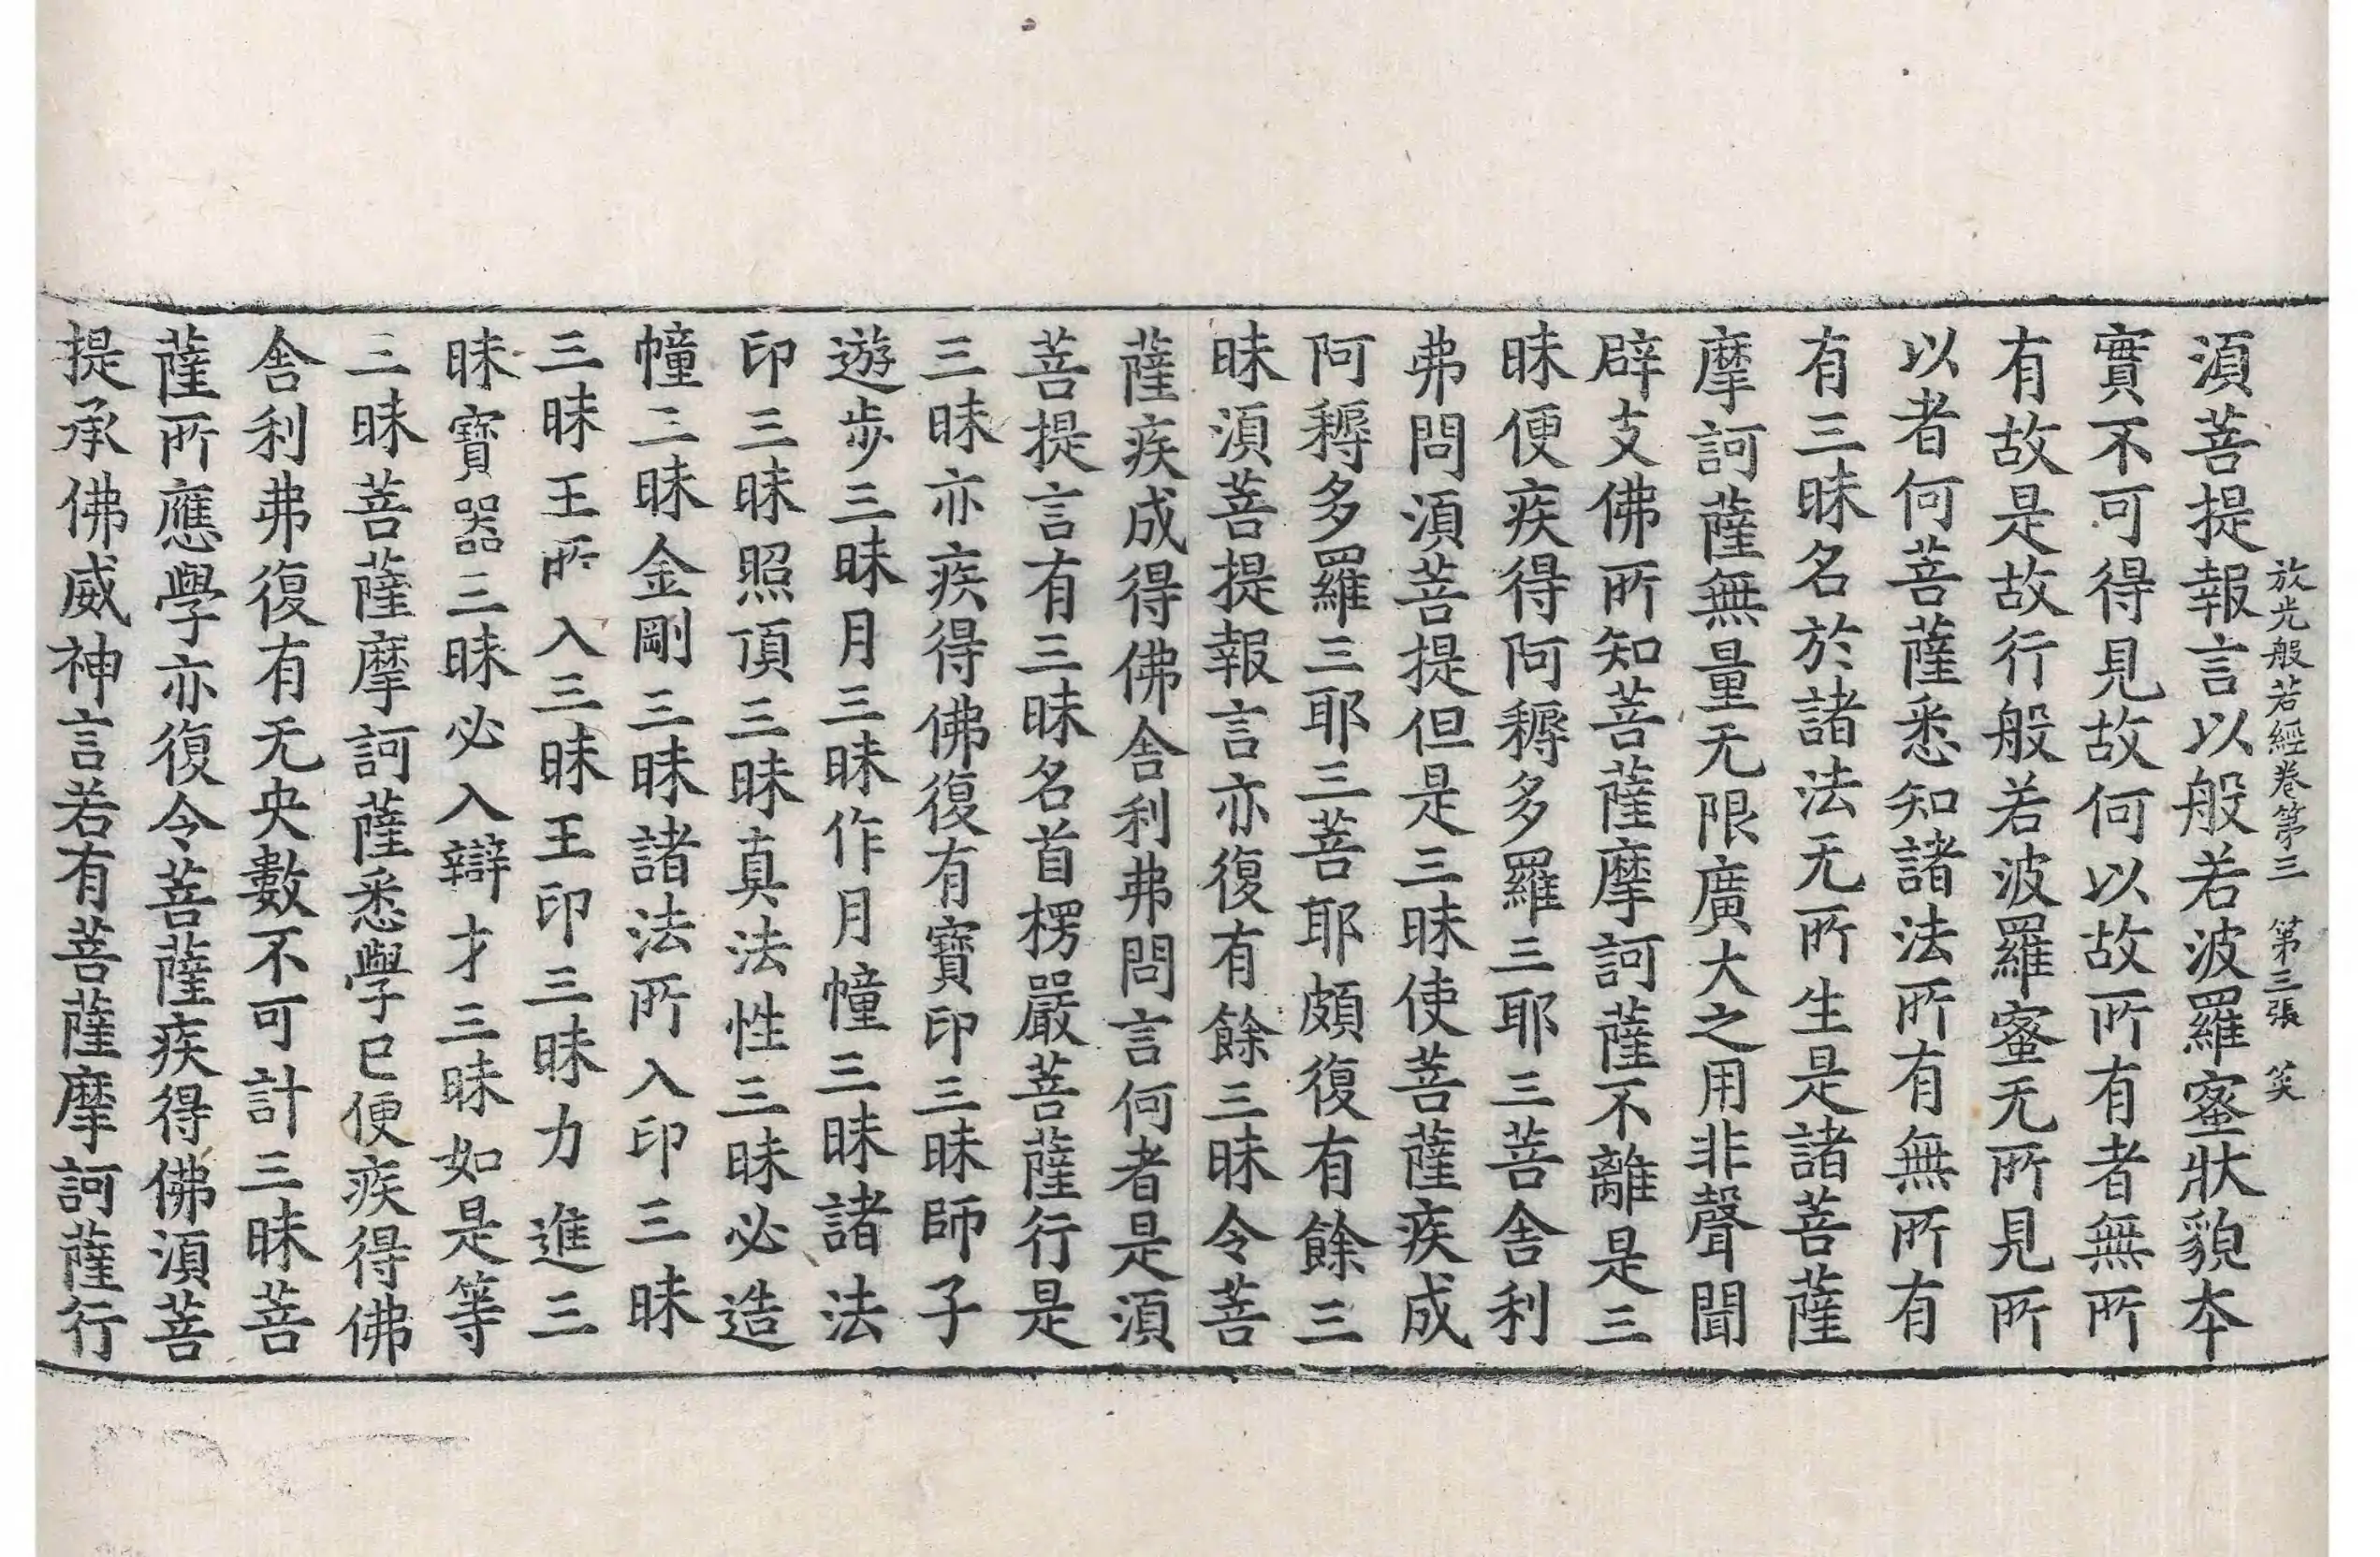 放光般若經卷第三　第三張　笑
湏菩提報言以般若波羅蜜狀貌本
實不可得見故何以故所有者無所
有故是故行般若波羅蜜无所見所
以者何菩薩悉知諸法所有無所有
有三昧名於諸法无所生是諸菩薩
摩訶薩無量无限廣大之用非聲聞
辟支佛所知菩薩摩訶薩不離是三
昧便疾得阿耨多羅三耶三菩舍利
弗問湏菩提但是三昧使菩薩疾成
阿耨多羅三耶三菩耶頗復有餘三
昧湏菩提報言亦復有餘三昧令菩
薩疾成得佛舍利弗問言何者是湏
菩提言有三昧名首楞嚴菩薩行是
三昧亦疾得佛復有寶印三昧師子
遊步三昧月三昧作月幢三昧諸法
印三昧照頂三昧真法性三昧必造
幢三昧金剛三昧諸法所入印三昧
三昧王所入三昧王印三昧力進三
昧寶器三昧必入辯才三昧如是等
三昧菩薩摩訶薩悉學已便疾得佛
舍利弗復有无央數不可計三昧菩
薩所應學亦復令菩薩疾得佛湏菩
提承佛威神言若有菩薩摩訶薩行